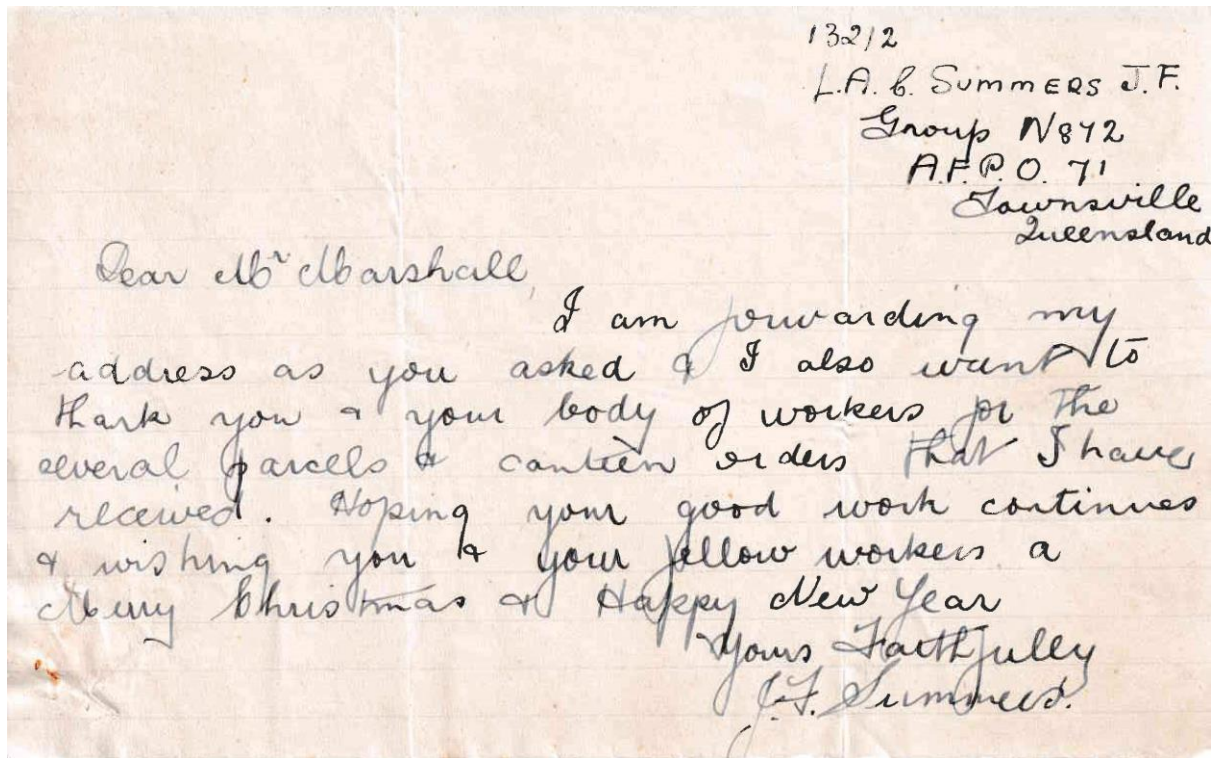 13212
L.A.C. SUMMERS J.F.
Group N872
A.F.P.O. 71
Townsville
Queensland
Dear Mr Marshall,
I am forwarding my
address as you asked & I also want to
thank you & your body of workers for the
several parcels & canteen orders that I have
received. Hoping your good work continues
& wishing you & your fellow workers a
Merry Christmas & Happy New Year
Yours Faithfully
J.F. Summers.